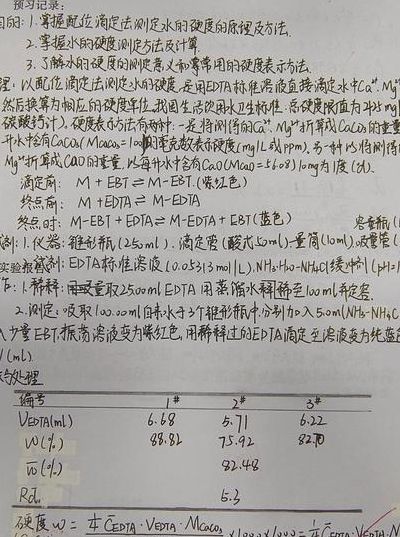 预习记录:
目的: 1.掌握配位滴定法测定水的硬度的原理及方法.
2.掌握水的硬度测定方法及计算.
3.了解水的硬度的测定意义和常用的硬度表示方法.
理: 以配位滴定法测定水的硬度,是用EDTA标准溶液直接滴定水中Ca²⁺,Mg²
然后换算为相应的硬度单位,我国生活饮用水卫生标准:总硬度限值为425mg
碳酸钙计).硬度表示方法有两种:一是将测得的Ca²⁺,Mg²⁺折算成CaCO₃的重量
升水中含CaCO₃(Mcaco₃=100)的毫克数表示硬度(mg/L或ppm),另一种以将测得
Mg²⁺折算成CaO的重量,以每升水中含CaO(Mcao=56.08)10mg为1度(d).
滴定前: M+EBT⇌M-EBT.(紫红色)
终点前: M+EDTA⇌M-EDTA
终点时: M-EBT+EDTA⇌M-EDTA+EBT(蓝色) 容量瓶(
试剂: 1.仪器:锥形瓶(250ml).滴定管(酸式50ml)量筒(10ml).吸量管(
实验报 试剂:EDTA标准溶液(0.05313mol/L).NH₃·H₂O-NH₄Cl缓冲剂(pH=1
1.稀释: 量取25.00ml EDTA用蒸馏水稀释至100ml并定容.
2.测定:吸取100.00ml自来水于3个锥形瓶中,分别加入5.0m(NH₃-NH₄C
入少量EBT,振荡溶液变为紫红色,用稀释过的EDTA滴定至溶液变为纯蓝色
V(ml)
与处理
编号 1# 2# 3#
VEDTA(ml) 6.68 5.71 6.22
W(%) 88.82 75.92 82.70
W̄(%) 82.48
Rd̄. 5.3
硬度W= ¼CEDTA·VEDTA·Mcaco₃ ×1000×1000=¼CEDTA·VEDTA·M